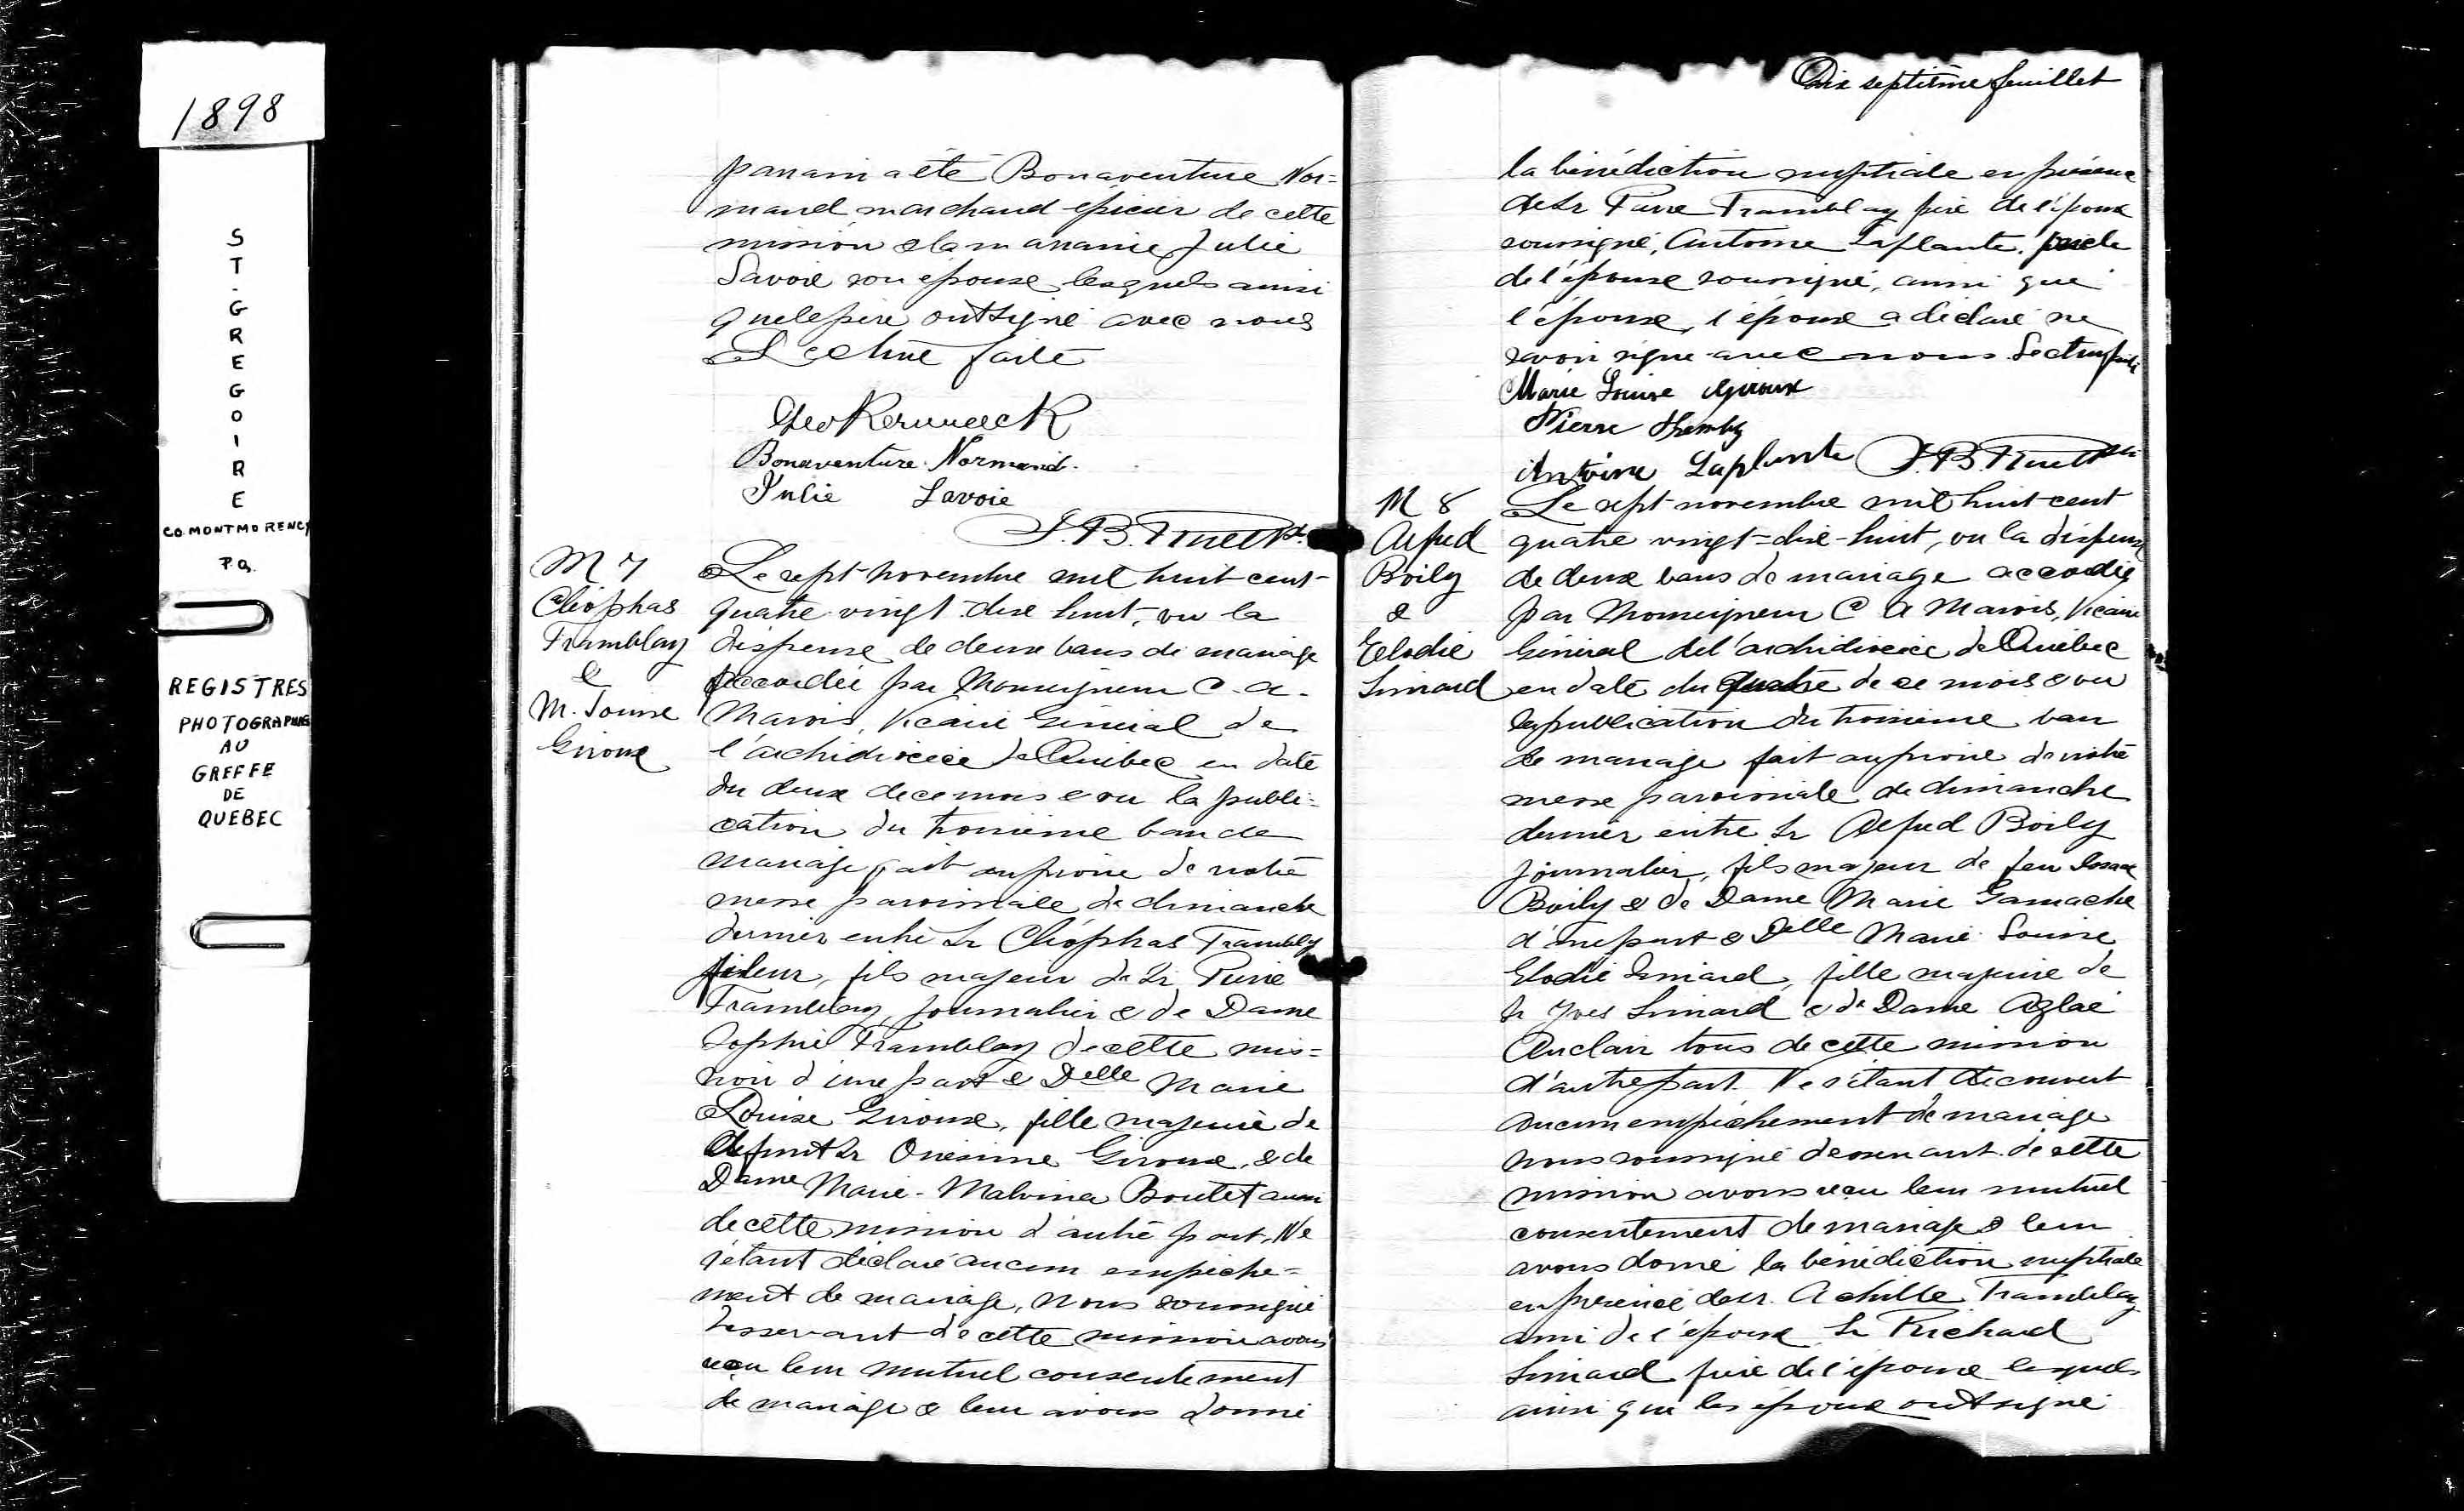 1898
ST. GREGOIRE
CO. MONTMORENCY
P.Q.
REGISTRES
PHOTOGRAPHIÉS
AU
GREFFE
DE
QUEBEC
parrain a été Bonaventure Nor=
mand marchand épicier de cette
mission & la marraine Julie
Savoie son épouse lesquels ainsi
que le père ont signé avec nous
Lecture faite
Geo Kerwueeck
Bonaventure Normand.
Julie Savoie
J. B. Ruel Ptr.
M 7
Cléophas
Tramblay
&
M. Louise
Giroux
Le sept novembre mil huit cent-
quatre vingt-dix huit, vu la
dispense de deux bans de mariage
accordée par Monseigneur C. A.
Marois, Vicaire Général de
l'archidiocèse de Québec en date
du deux de ce mois & vu la publi=
cation du troisième ban de
mariage fait au prône de notre
messe paroissiale de dimanche
dernier entre Sr Cléophas Trambly
fileur, fils majeur de Sr Pierre
Tramblay, journalier & de Dame
Sophie Tramblay de cette mis=
sion d'une part & Delle Marie
Louise Giroux, fille majeure de
defunt Sr Onésime Giroux, & de
Dame Marie-Malvina Boutet aussi
de cette mission d'autre part, Ne
s'étant déclaré aucun empêche=
ment de mariage, Nous soussigné
desservant de cette mission avons
reçu leur mutuel consentement
de mariage & leur avons donné
Dix septième feuillet
la bénédiction nuptiale en présence
de Sr Pierre Tramblay père de l'époux
soussigné, Antoine Laplante,
de l'épouse soussigné, ainsi que
l'épouse, l'époux a déclaré ne
savoir signer avec nous. Lecture faite
Marie Louise Giroux
Pierre Trembly
Antoine Laplante J. B. Ruel Ptr
M 8
Alfred
Boily
&
Elodie
Simard
Le sept novembre mil huit cent
quatre vingt-dix-huit, vu la dispense
de deux bans de mariage accordée
par Monseigneur C A Marois, Vicaire
Général de l'archidiocèse de Québec
en date du quatre de ce mois & vu
la publication du troisième ban
de mariage fait au prône de notre
messe paroissiale de dimanche
dernier entre Sr Alfred Boily
journalier, fils majeur de feu Isaac
Boily & de Dame Marie Gamache
d'une part & Delle Marie Louise
Elodie Simard, fille majeure de
Sr Yves Simard & de Dame Aglaé
Auclair tous de cette mission
d'autre part. Ne s'étant découvert
aucun empêchement de mariage
nous soussigné desservant de cette
mission avons reçu leur mutuel
consentement de mariage & leur
avons donné la bénédiction nuptiale
en présence de Sr. Achille Tramblay
ami de l'époux Sr Richard
Simard frère de l'épouse lesquels
ainsi que les époux ont signé